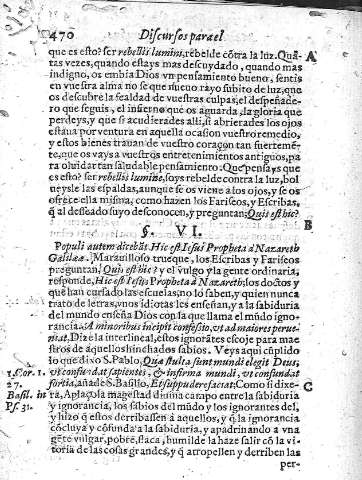 470 Discursos para el
que es esto? ser rebellis lumini, rebelde cōtra la luz. Quā-
tas vezes, quando estays mas descuydado, quando mas
indigno, os embia Dios vn pensamiento bueno, sentis
en vuestra alma no se que nueuo rayo subito de luz, que
os descubre la fealdad de vuestras culpas, el despeñade-
ro que seguis, el infierno que os aguarda, la gloria que
perdeys, y que si acudierades alli, si abrierades los ojos
estaua por ventura en aquella ocasion vuestro remedio,
y estos bienes trauan de vuestro coraçon tan fuerteme-
te, que os vays a vuestros entretenimientos antiguos, pa
ra oluidar tan saludable pensamiento. Que pensays que
es esto? ser rebellis lumine, soys rebelde contra la luz, bol
ueysle las espaldas, aunque se os viene a los ojos, y se os
ofrece ella misma, como hazen los Fariseos, y Escribas,
q̄ al desseado suyo desconocen, y preguntan: Quis est hic?
A
B
§. VI.
Populi autem dicebāt. Hic est Iesus Propheta à Nazareth
Galileæ. Marauilloso trueque, los Escribas y Fariseos
preguntan, Quis est hic? y el vulgo y la gente ordinaria,
responde, Hic est Iesus Propheta à Nazareth; los doctos y
que han cursado las escuelas, no lo saben, y quien nunca
trato de letras, vnos idiotas les enseñan, y a la sabiduria
del mundo enseña Dios con la que llama el mūdo igno-
rancia. A minoribus incipit confessio, vt ad maiores perue-
niat, Dize la interlineal, estos ignorātes escoje para mae
stros de aquellos hinchados sabios. Veys aqui cūplido
lo que dixo S. Pablo, Quæ stulta sunt mundi elegit Deus,
vt confundat sapientes, & infirma mundi, vt confundat
fortia, añade S. Basilio, Et suppuderfaciat; Como si dixe-
ra, Aplaçola magestad diuina campo entre la sabiduria
y ignorancia, los sabios del mūdo y los ignorantes del,
y hizo q̄ estos derribassen à aquellos, y q̄ la ignorancia
cōcluya y cōfunda a la sabiduria, y apadrinando a vna
gēte vulgar, pobre, flaca, humilde la haze salir cō la vi-
toria de las cosas grandes, y q̄ atropellen y derriben las
per-
1. Cor. 1.
27.
Basil. in
Ps. 31.
C